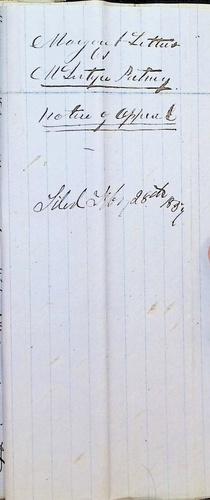 Margaret Lettus
vs
McIntyre Putney
Notice of Appeal
Filed Nov 28th 1859